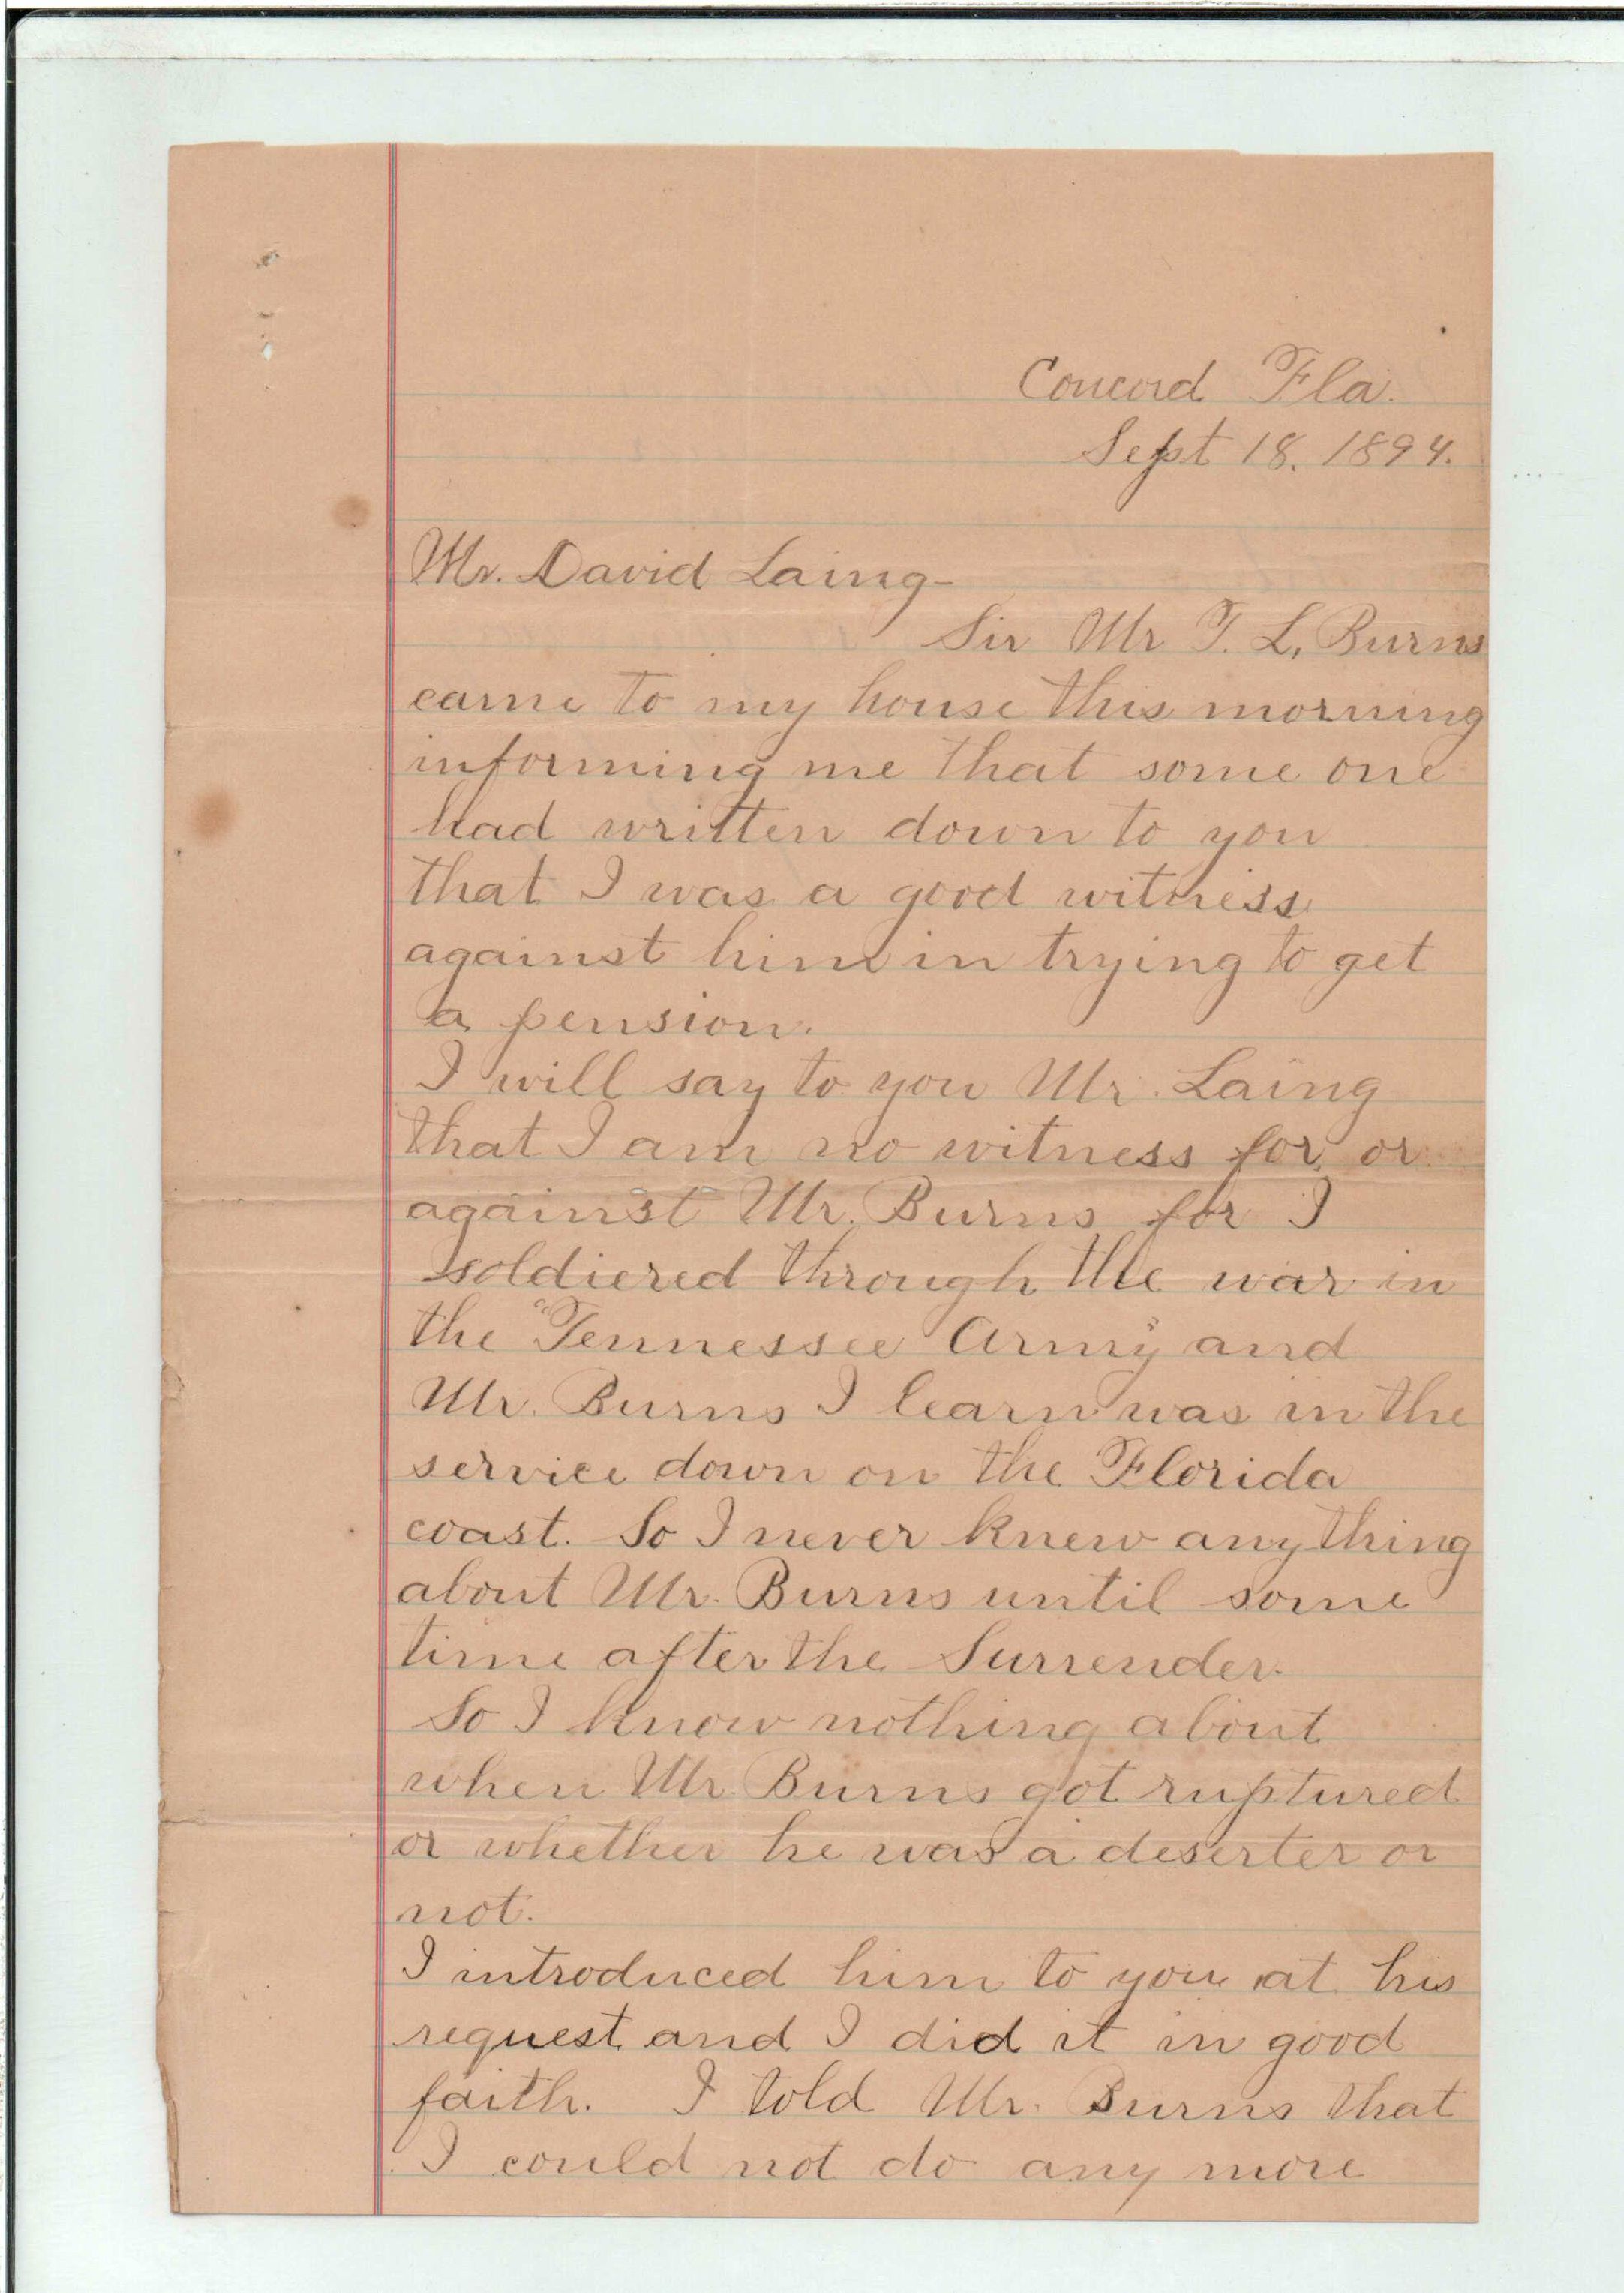 Concord Fla.
Sept 18. 1894.
Mr. David Laing-
Sir Mr T. L. Burns
came to my house this morning
informing me that some one
had written down to you
that I was a good witness
against him in trying to get
a pension.
I will say to you Mr. Laing
that I am no witness for or
against Mr. Burns for I
soldiered through the war in
the "Tennessee Army" and
Mr. Burns I learn was in the
service down on the Florida
coast. So I never knew anything
about Mr. Burns until some
time after the Surrender.
So I know nothing about
when Mr. Burns got ruptured
or whether he was a deserter or
not.
I introduced him to you at his
request and I did it in good
faith. I told Mr. Burns that
I could not do any more